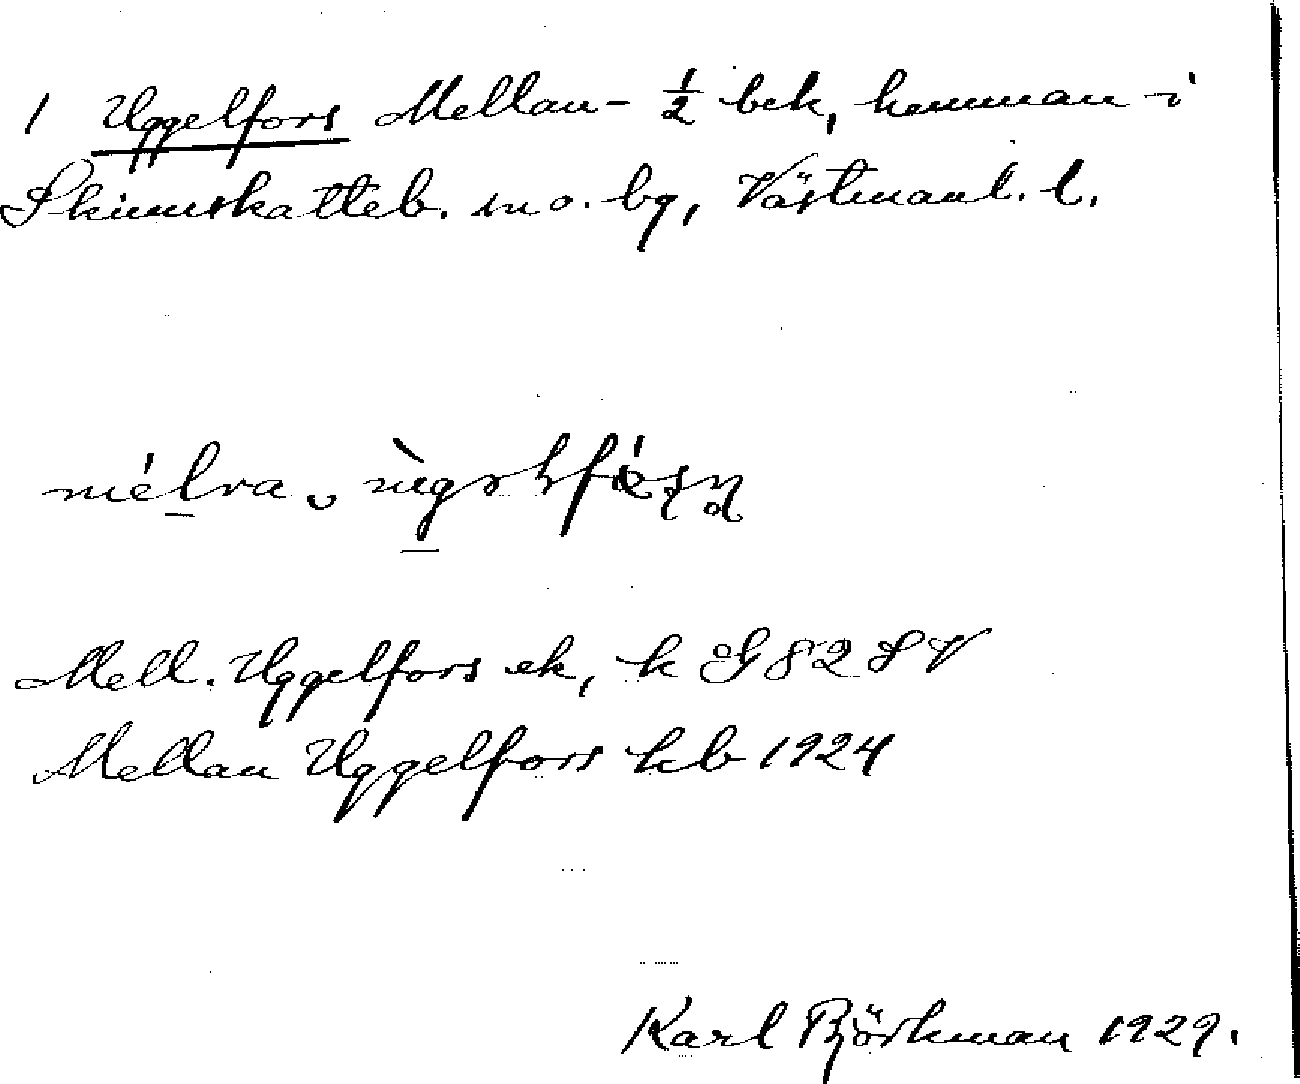 1 Uggelfors Mellan- ½ bek, hemman i
Skinnskatteb. sn o. bg, Västmanl. l.
Mell. Uggelfors ek, k G 82 SV
Mellan Uggelfors hb 1924
Karl Björkman 1929.